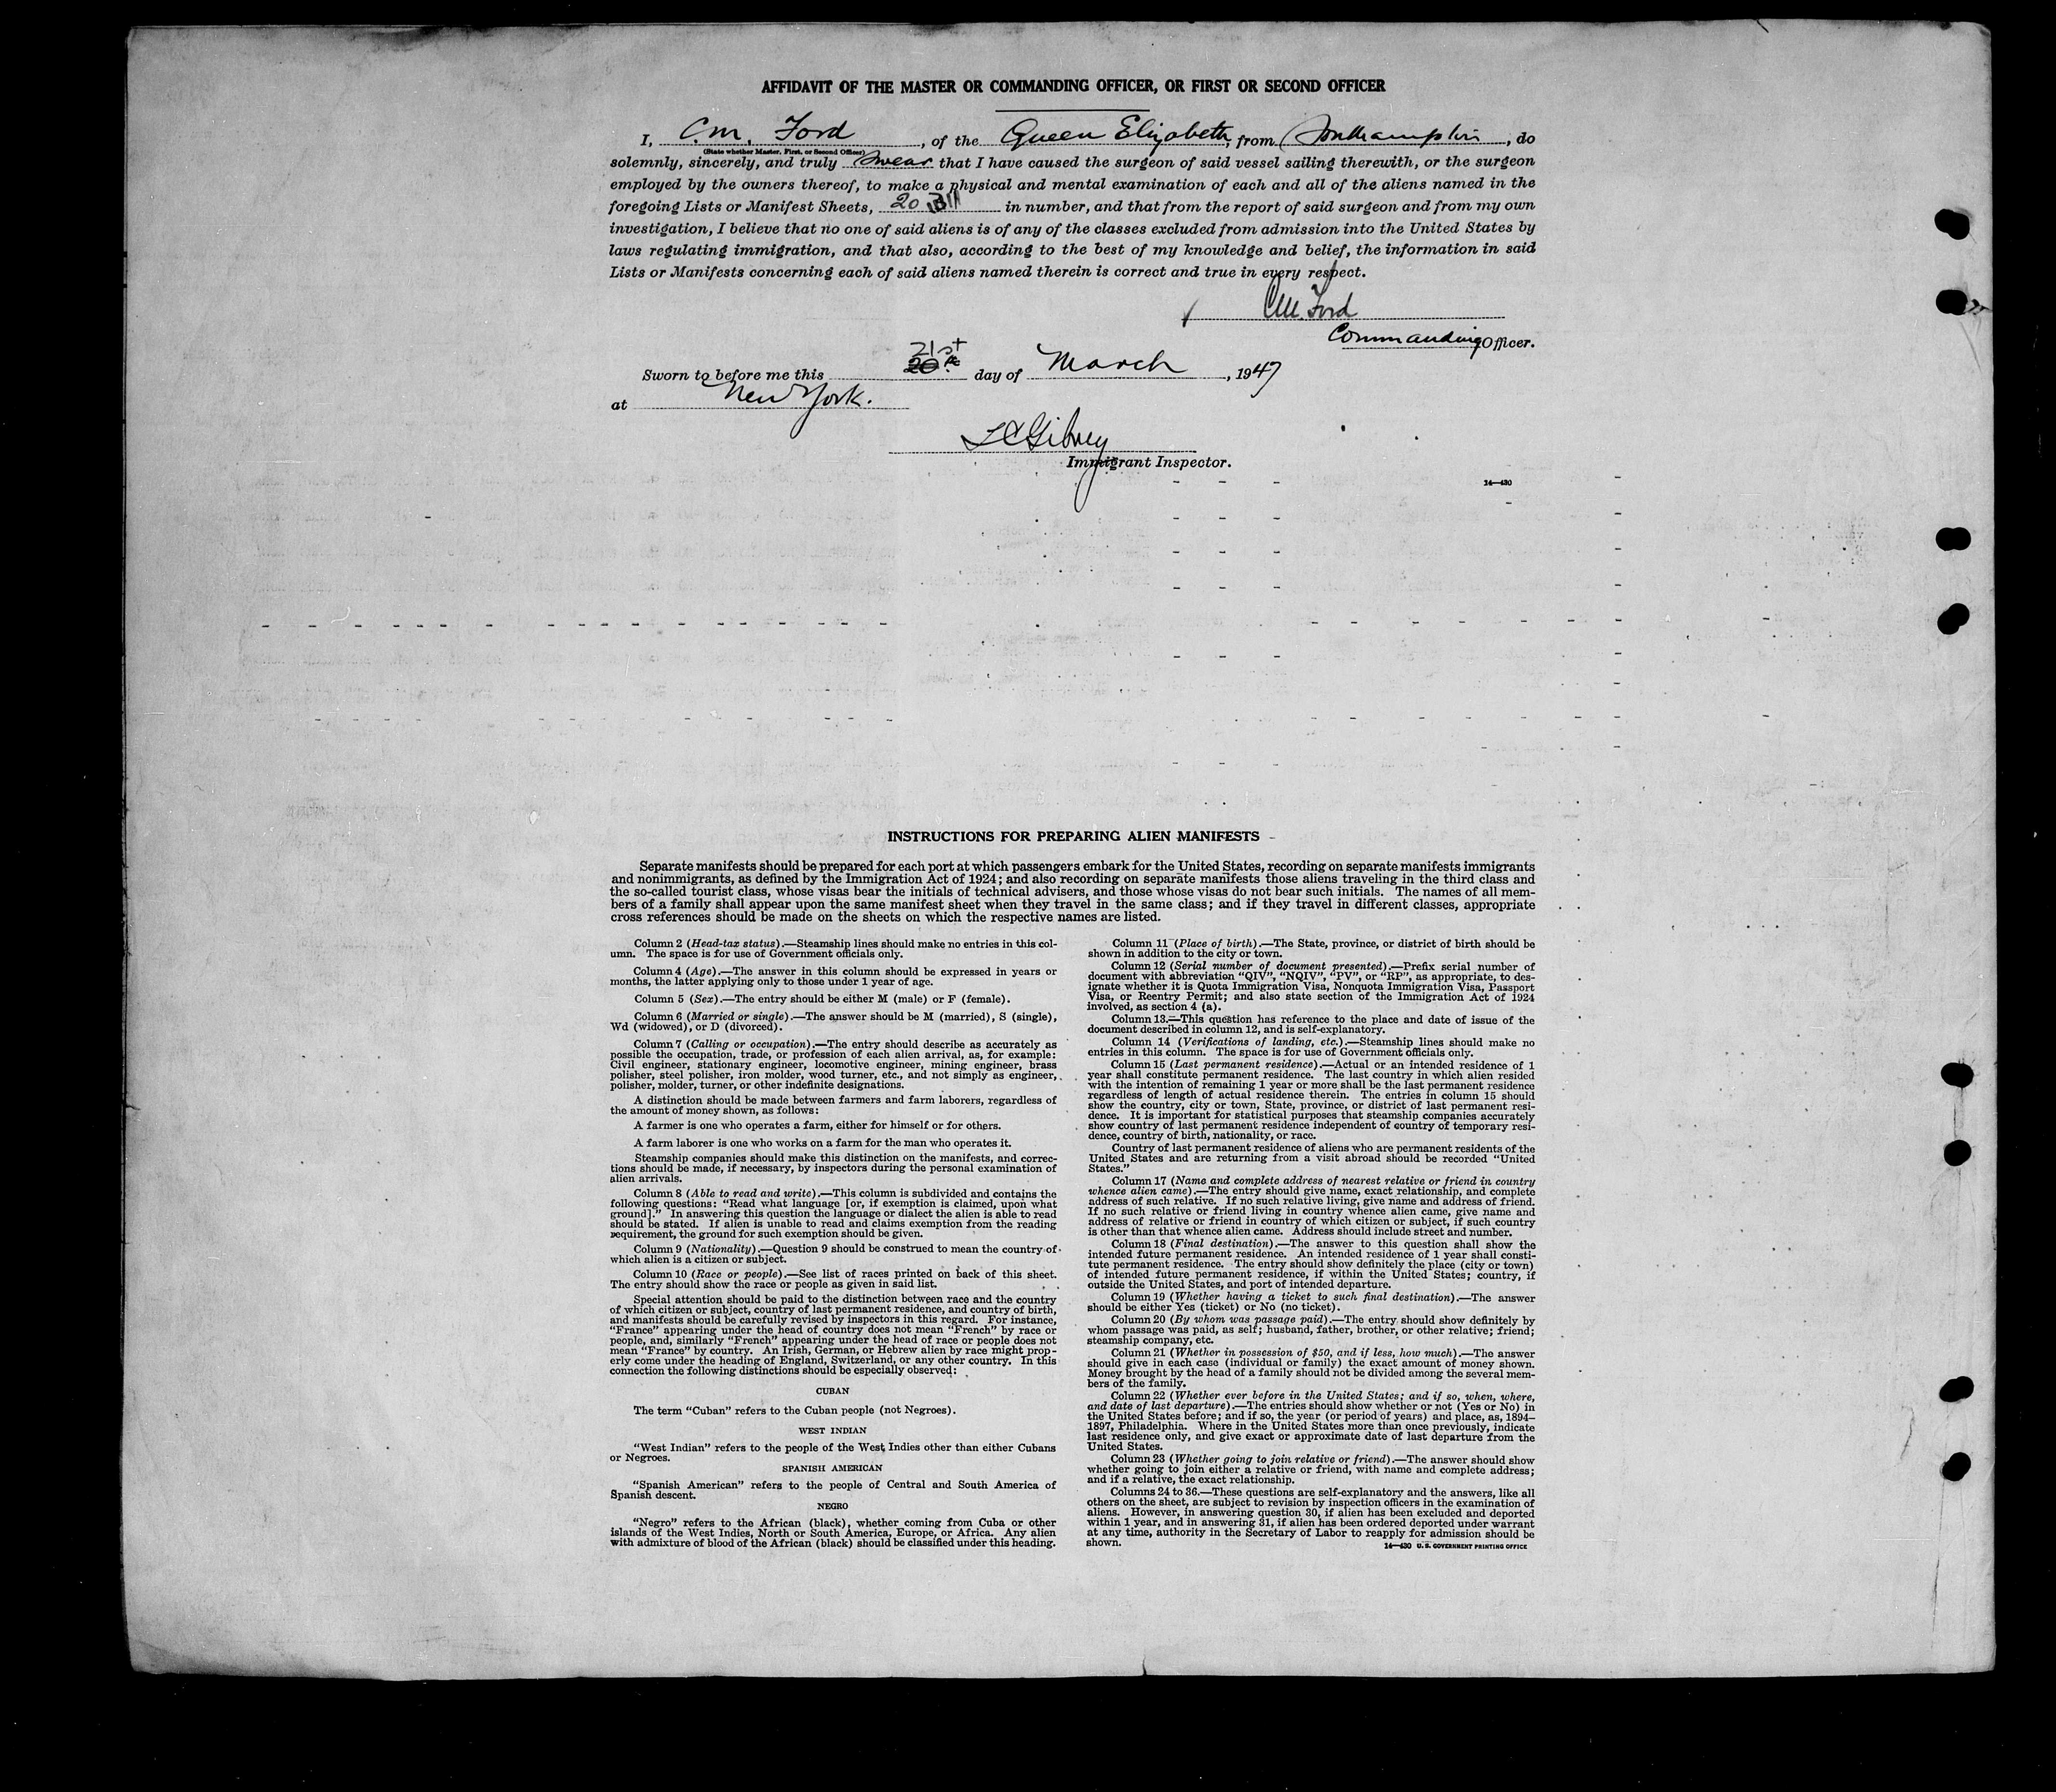 AFFIDAVIT OF THE MASTER OR COMMANDING OFFICER, OR FIRST OR SECOND OFFICER
I, C.M. Ford, of the Queen Elizabeth, from Southampton, do
(State whether Master, First, or Second Officer)
solemnly, sincerely, and truly swear that I have caused the surgeon of said vessel sailing therewith, or the surgeon
employed by the owners thereof, to make a physical and mental examination of each and all of the aliens named in the
foregoing Lists or Manifest Sheets, 20 in number, and that from the report of said surgeon and from my own
investigation, I believe that no one of said aliens is of any of the classes excluded from admission into the United States by
laws regulating immigration, and that also, according to the best of my knowledge and belief, the information in said
Lists or Manifests concerning each of said aliens named therein is correct and true in every respect.
C.M. Ford
Commanding Officer.
21st
Sworn to before me this 20th day of March, 1947
at New York.
Immigrant Inspector.
14—430
INSTRUCTIONS FOR PREPARING ALIEN MANIFESTS
Separate manifests should be prepared for each port at which passengers embark for the United States, recording on separate manifests immigrants
and nonimmigrants, as defined by the Immigration Act of 1924; and also recording on separate manifests those aliens traveling in the third class and
the so-called tourist class, whose visas bear the initials of technical advisers, and those whose visas do not bear such initials. The names of all mem-
bers of a family shall appear upon the same manifest sheet when they travel in the same class; and if they travel in different classes, appropriate
cross references should be made on the sheets on which the respective names are listed.
Column 2 (Head-tax status).—Steamship lines should make no entries in this col-
umn. The space is for use of Government officials only.
Column 4 (Age).—The answer in this column should be expressed in years or
months, the latter applying only to those under 1 year of age.
Column 5 (Sex).—The entry should be either M (male) or F (female).
Column 6 (Married or single).—The answer should be M (married), S (single),
Wd (widowed), or D (divorced).
Column 7 (Calling or occupation).—The entry should describe as accurately as
possible the occupation, trade, or profession of each alien arrival, as, for example:
Civil engineer, stationary engineer, locomotive engineer, mining engineer, brass
polisher, steel polisher, iron molder, wood turner, etc., and not simply as engineer,
polisher, molder, turner, or other indefinite designations.
A distinction should be made between farmers and farm laborers, regardless of
the amount of money shown, as follows:
A farmer is one who operates a farm, either for himself or for others.
A farm laborer is one who works on a farm for the man who operates it.
Steamship companies should make this distinction on the manifests, and correc-
tions should be made, if necessary, by inspectors during the personal examination of
alien arrivals.
Column 8 (Able to read and write).—This column is subdivided and contains the
following questions: "Read what language [or, if exemption is claimed, upon what
ground]." In answering this question the language or dialect the alien is able to read
should be stated. If alien is unable to read and claims exemption from the reading
requirement, the ground for such exemption should be given.
Column 9 (Nationality).—Question 9 should be construed to mean the country of
which alien is a citizen or subject.
Column 10 (Race or people).—See list of races printed on back of this sheet.
The entry should show the race or people as given in said list.
Special attention should be paid to the distinction between race and the country
of which citizen or subject, country of last permanent residence, and country of birth,
and manifests should be carefully revised by inspectors in this regard. For instance,
"France" appearing under the head of country does not mean "French" by race or
people, and, similarly "French" appearing under the head of race or people does not
mean "France" by country. An Irish, German, or Hebrew alien by race might prop-
erly come under the heading of England, Switzerland, or any other country. In this
connection the following distinctions should be especially observed:
CUBAN
The term "Cuban" refers to the Cuban people (not Negroes).
WEST INDIAN
"West Indian" refers to the people of the West Indies other than either Cubans
or Negroes.
SPANISH AMERICAN
"Spanish American" refers to the people of Central and South America of
Spanish descent.
NEGRO
"Negro" refers to the African (black), whether coming from Cuba or other
islands of the West Indies, North or South America, Europe, or Africa. Any alien
with admixture of blood of the African (black) should be classified under this heading.
Column 11 (Place of birth).—The State, province, or district of birth should be
shown in addition to the city or town.
Column 12 (Serial number of document presented).—Prefix serial number of
document with abbreviation "QIV", "NQIV", "PV", or "RP", as appropriate, to des-
ignate whether it is Quota Immigration Visa, Nonquota Immigration Visa, Passport
Visa, or Reentry Permit; and also state section of the Immigration Act of 1924
involved, as section 4 (a).
Column 13.—This question has reference to the place and date of issue of the
document described in column 12, and is self-explanatory.
Column 14 (Verifications of landing, etc.).—Steamship lines should make no
entries in this column. The space is for use of Government officials only.
Column 15 (Last permanent residence).—Actual or an intended residence of 1
year shall constitute permanent residence. The last country in which alien resided
with the intention of remaining 1 year or more shall be the last permanent residence
regardless of length of actual residence therein. The entries in column 15 should
show the country, city or town, State, province, or district of last permanent resi-
dence. It is important for statistical purposes that steamship companies accurately
show country of last permanent residence independent of country of temporary resi-
dence, country of birth, nationality, or race.
Country of last permanent residence of aliens who are permanent residents of the
United States and are returning from a visit abroad should be recorded "United
States."
Column 17 (Name and complete address of nearest relative or friend in country
whence alien came).—The entry should give name, exact relationship, and complete
address of such relative. If no such relative living, give name and address of friend.
If no such relative or friend living in country whence alien came, give name and
address of relative or friend in country of which citizen or subject, if such country
is other than that whence alien came. Address should include street and number.
Column 18 (Final destination).—The answer to this question shall show the
intended future permanent residence. An intended residence of 1 year shall consti-
tute permanent residence. The entry should show definitely the place (city or town)
of intended future permanent residence, if within the United States; country, if
outside the United States, and port of intended departure.
Column 19 (Whether having a ticket to such final destination).—The answer
should be either Yes (ticket) or No (no ticket).
Column 20 (By whom was passage paid).—The entry should show definitely by
whom passage was paid, as self; husband, father, brother, or other relative; friend;
steamship company, etc.
Column 21 (Whether in possession of $50, and if less, how much).—The answer
should give in each case (individual or family) the exact amount of money shown.
Money brought by the head of a family should not be divided among the several mem-
bers of the family.
Column 22 (Whether ever before in the United States; and if so, when, where,
and date of last departure).—The entries should show whether or not (Yes or No) in
the United States before; and if so, the year (or period of years) and place, as, 1894–
1897, Philadelphia. Where in the United States more than once previously, indicate
last residence only, and give exact or approximate date of last departure from the
United States.
Column 23 (Whether going to join relative or friend).—The answer should show
whether going to join either a relative or friend, with name and complete address;
and if a relative, the exact relationship.
Columns 24 to 36.—These questions are self-explanatory and the answers, like all
others on the sheet, are subject to revision by inspection officers in the examination of
aliens. However, in answering question 30, if alien has been excluded and deported
within 1 year, and in answering 31, if alien has been ordered deported under warrant
at any time, authority in the Secretary of Labor to reapply for admission should be
shown.
14—430 U. S. GOVERNMENT PRINTING OFFICE